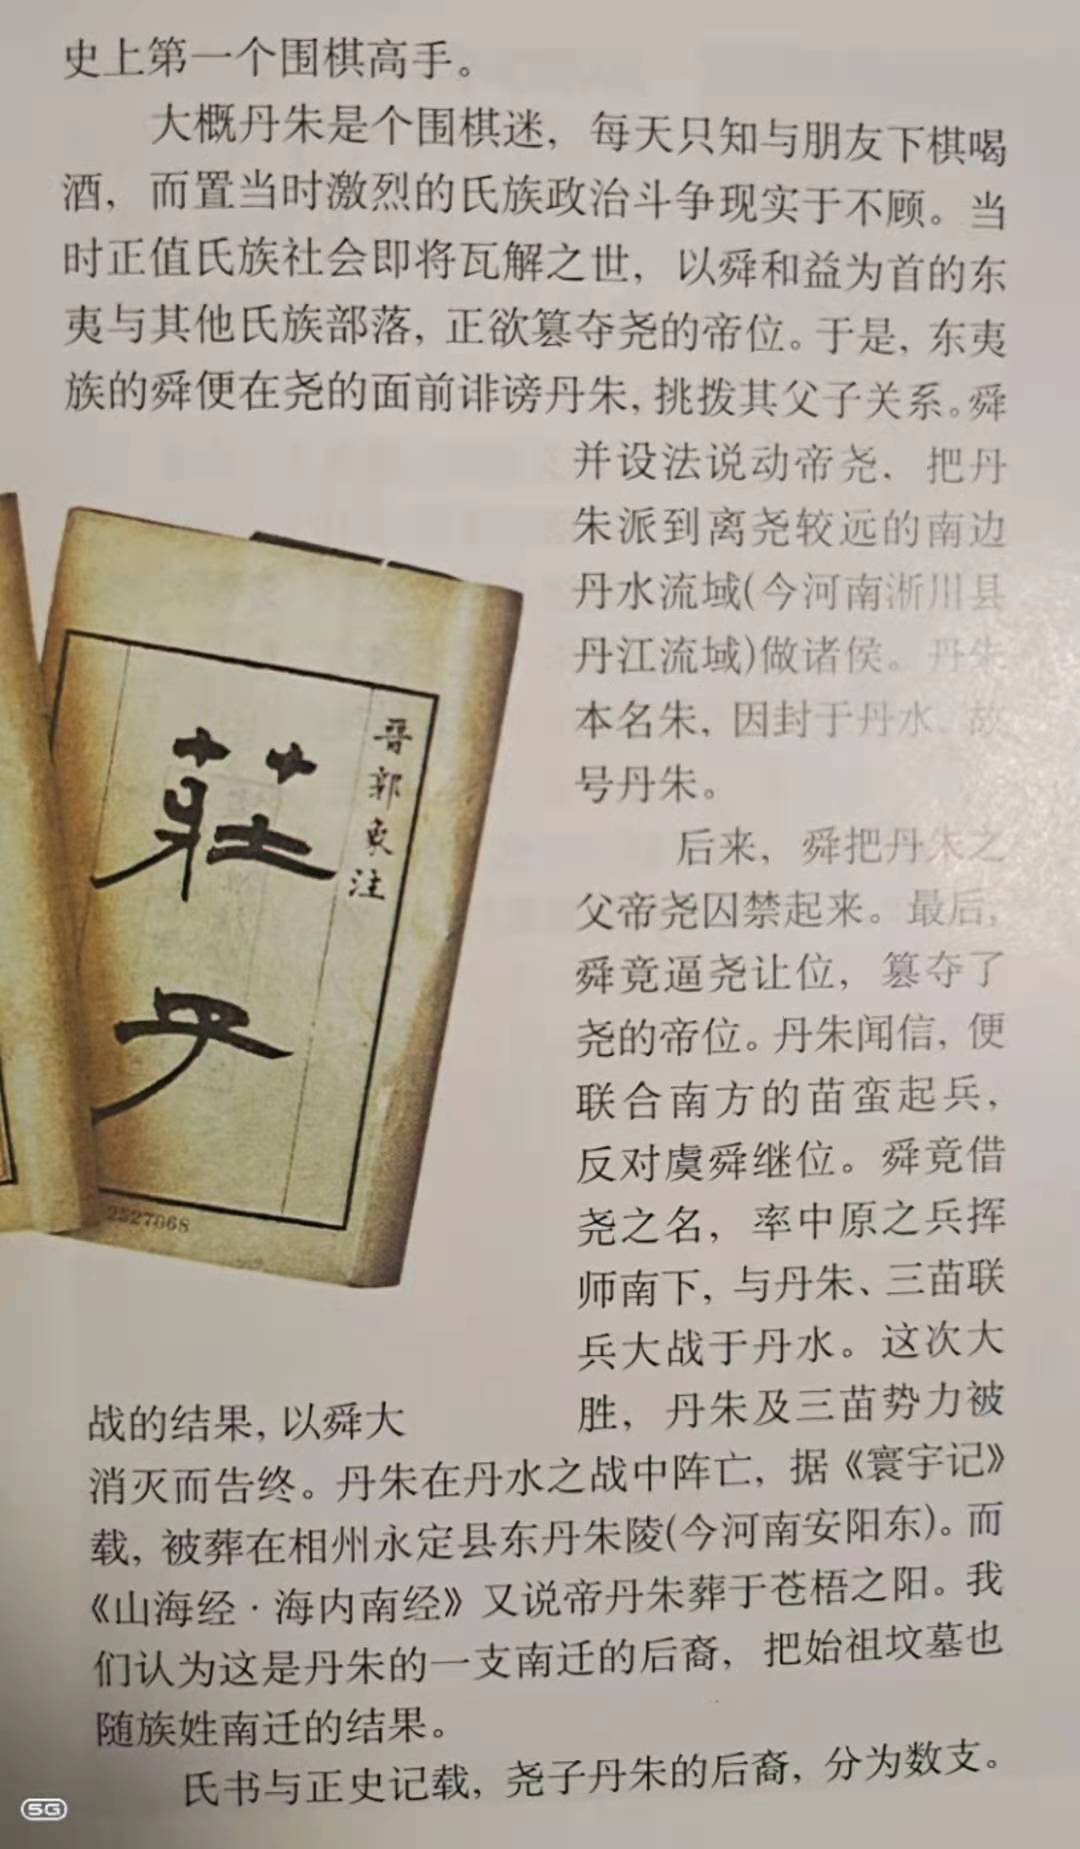 史上第一个围棋高手。
大概丹朱是个围棋迷，每天只知与朋友下棋喝
酒，而置当时激烈的氏族政治斗争现实于不顾。当
时正值氏族社会即将瓦解之世，以舜和益为首的东
夷与其他氏族部落，正欲篡夺尧的帝位。于是，东夷
族的舜便在尧的面前诽谤丹朱，挑拨其父子关系。舜
并设法说动帝尧，把丹
朱派到离尧较远的南边
丹水流域(今河南淅川县
丹江流域)做诸侯。丹朱
本名朱，因封于丹水，故
号丹朱。
后来，舜把丹朱之
父帝尧囚禁起来。最后，
舜竟逼尧让位，篡夺了
尧的帝位。丹朱闻信，便
联合南方的苗蛮起兵，
反对虞舜继位。舜竟借
尧之名，率中原之兵挥
师南下，与丹朱、三苗联
兵大战于丹水。这次大
战的结果，以舜大
胜，丹朱及三苗势力被
消灭而告终。丹朱在丹水之战中阵亡，据《寰宇记》
载，被葬在相州永定县东丹朱陵(今河南安阳东)。而
《山海经·海内南经》又说帝丹朱葬于苍梧之阳。我
们认为这是丹朱的一支南迁的后裔，把始祖坟墓也
随族姓南迁的结果。
氏书与正史记载，尧子丹朱的后裔，分为数支。
晋郭象注
莊子
2527068
5G